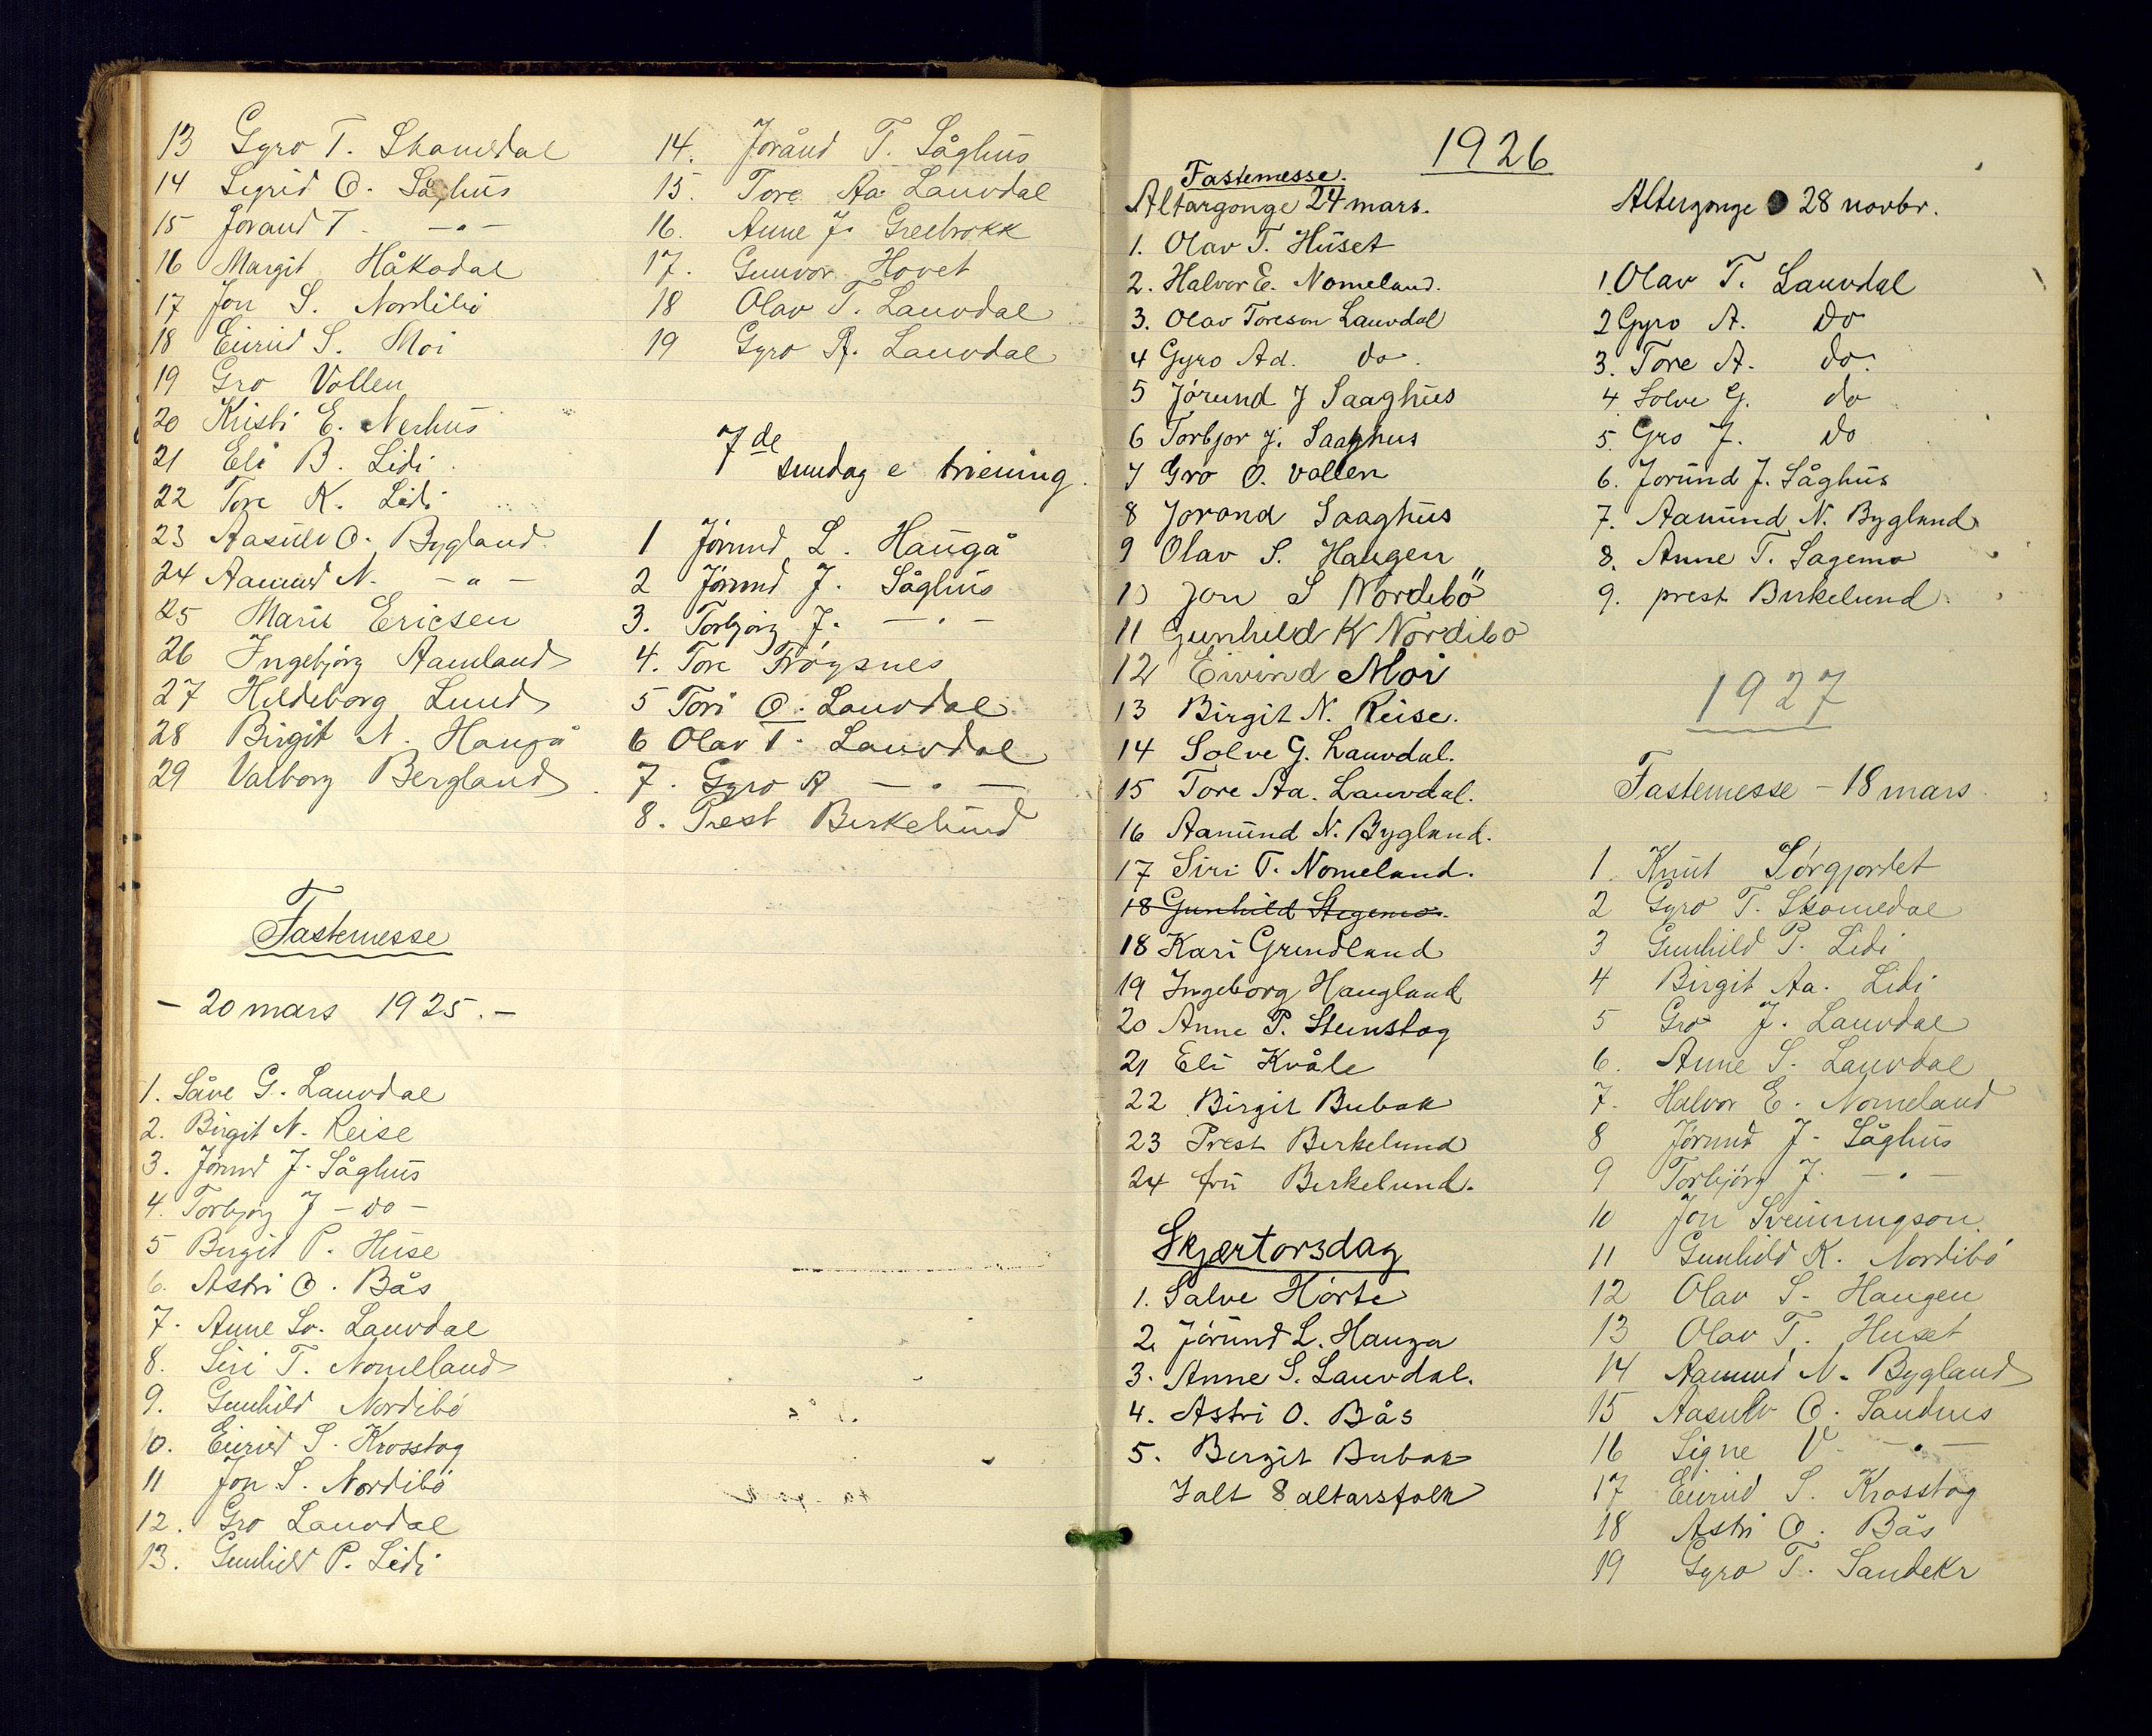 13 Gyro T. Skomedal
14 Sigrid O. Såghus
15 Jorand T. -〃-
16 Margit Håkodal
17 Jon S. Nordibö
18 Eivind S. Moi
19 Gro Vollen
20 Kristi E. Nerhus
21 Eli B. Lidi
22 Tore K. Lidi
23 Aasulv O. Bygland
24 Aamund N. -〃-
25 Maris Ericsen
26 Ingebjörg Aamland
27 Hildeborg Lund
28 Birgit N. Haugå
29 Valborg Bergland
Fastemesse
- 20 mars 1925. -
1. Såve G. Lauvdal
2. Birgit N. Reise
3. Jörund J. Såghus
4. Torbjørg J - do -
5 Birgit P. Huse
6. Astri O. Bås
7. Anne Sv. Lauvdal
8. Siri T. Nomeland
9. Gunhild Nordibö
10. Eivind S. Krosstög
11 Jon S. Nordibö
12. Gro Lauvdal
13. Gunhild P. Lidi
14. Jorånd T. Såghus
15. Tore Aa. Lauvdal
16. Anne J. Greibrokk
17. Gunvor Hovet
18 Olav T. Lauvdal
19 Gyro A. Lauvdal
7de
sundag e triening.
1 Jörund L. Haugå
2 Jörund J. Såghus
3. Torbjørg J. -〃-
4. Tore Frøysnes
5 Tori O. Lauvdal
6 Olav T. Lauvdal
7. Gyro A -〃-
8. Prest Birkelund
1926
Fastemesse.
Altargonge 24 mars.
1. Olav T. Huset
2. Halvor E. Nomeland.
3. Olav Toreson Lauvdal
4 Gyro Ad. do.
5 Jórund J Saaghus
6 Torbjor J. Saaghus
7 Gro O. Vollen
8 Jorond Saaghus
9 Olav S. Haugen
10 Jon S Nordibö
11 Gunhild K Nordibö
12 Eivind Moi
13 Birgit N. Reise.
14 Solve G. Lauvdal.
15 Tore Aa. Lauvdal.
16 Aamund N. Bygland.
17 Siri T. Nomeland.
18 Gunhild Stegemo.
18 Kari Grundland
19 Ingeborg Haugland
20 Anne P. Steinstog
21 Eli Kvåle
22 Birgit Bubak
23 Prest Birkelund
24 fru Birkelund.
Skjærtorsdag
1. Salve Hörte
2. Jörund L. Hauga
3. Anne S. Lauvdal.
4. Astri O. Bås
5. Birgit Bubak
Ialt 8 altarsfolk
Altergonge 28 novbr.
1. Olav T. Lauvdal
2 Gyro A. do
3. Tore A. do.
4 Solve G. do
5. Gro J. do
6. Jorund J. Såghus
7. Aamund N. Bygland
8. Anne T. Sagemo
9. prest Birkelund
1927
Fastemesse - 18 mars
1. Knut Sörgjordet
2 Gyro T. Skomedal
3 Gunhild P. Lidi
4 Birgit Aa. Lidi
5 Gro J. Lauvdal
6. Anne S. Lauvdal
7. Halvor E. Nomeland
8 Jörund J. Såghus
9 Torbjörg J. -〃-
10 Jon Sveinungson
11 Gunhild K. Nordibö
12 Olav S. Haugen
13 Olav T. Huset
14 Aamund N. Bygland
15 Aasulv O. Sandnes
16 Signe V. -〃-
17 Eivind S. Krosstög
18 Astri O. Bås
19 Gyro T. Sandekr